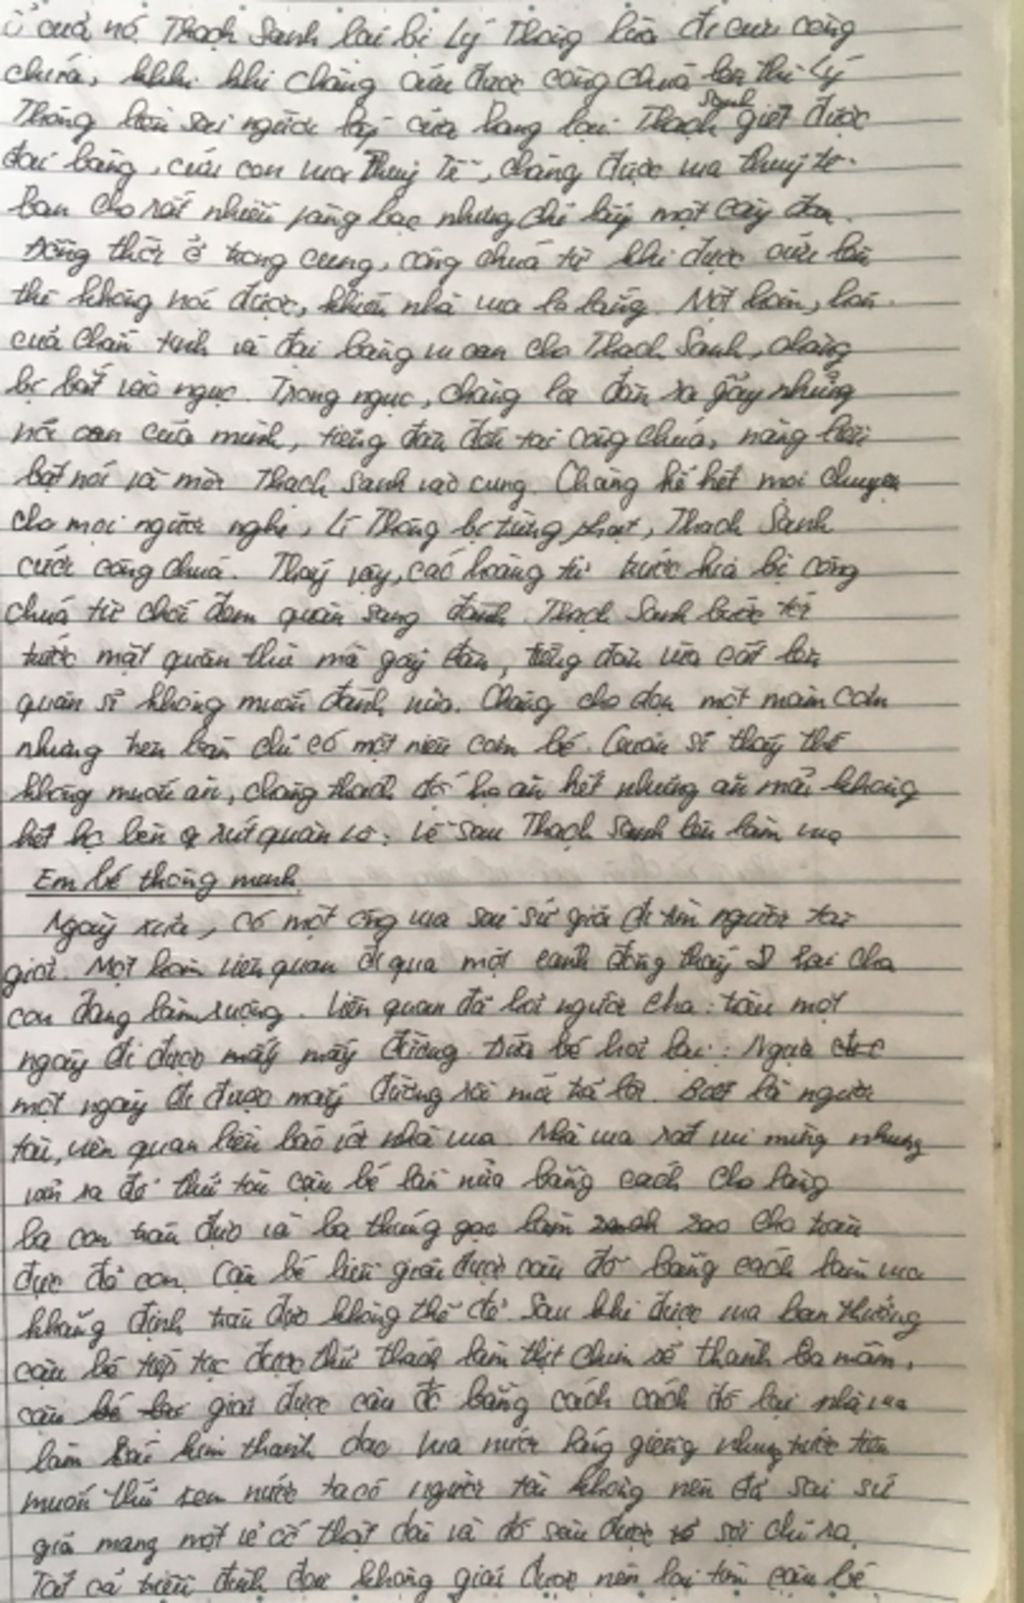 ở của nó. Thạch Sanh lại bị Lý Thông lừa đi cứu công
chúa, khi chàng cứu được công chúa lên thì Lý
Thông liền sai người lấp cửa hang lại. Thạch Sanh giết được
đại bàng, cứu con vua Thuỷ Tề, chàng được vua thuỷ tề
ban cho rất nhiều vàng bạc nhưng chỉ lấy một cây đàn.
Đồng thời ở trong cung, công chúa từ khi được cứu lên
thì không nói được, khiến nhà vua lo lắng. Một hôm, hồn
của chằn tinh và đại bàng vu oan cho Thạch Sanh, chàng
bị bắt vào ngục. Trong ngục, chàng lấy đàn ra gẩy những
nỗi oan của mình, tiếng đàn đến tai công chúa, nàng liền
bật nói và mời Thạch Sanh vào cung. Chàng kể hết mọi chuyện
cho mọi người nghe, Lí Thông bị trừng phạt, Thạch Sanh
cưới công chúa. Thấy vậy, các hoàng tử trước kia bị công
chúa từ chối đem quân sang đánh. Thạch Sanh bước tới
trước mặt quân thù mà gảy đàn, tiếng đàn vừa cất lên
quân sĩ không muốn đánh nữa. Chàng cho dọn một mâm cơm
nhưng trên bàn chỉ có một niêu cơm bé. Quân sĩ thấy thế
không muốn ăn, chàng thách đố họ ăn hết nhưng ăn mãi không
hết họ bèn rút quân về. Về sau Thạch Sanh lên làm vua
Em bé thông minh
Ngày xưa, có một ông vua sai sứ giả đi tìm người tài
giỏi. Một hôm viên quan đi qua một cánh đồng thấy hai cha
con đang làm ruộng. Viên quan đã hỏi người cha: trâu một
ngày đi được mấy mấy đường. Đứa bé hỏi lại: Ngựa
một ngày đi được mấy đường rồi mới trả lời. Biết là người
tài, viên quan liền báo với nhà vua. Nhà vua rất vui mừng nhưng
vẫn ra đố thử tài cậu bé lần nữa bằng cách cho làng
ba con trâu đực và ba thúng gạo làm sao cho trâu
đực đẻ con. Cậu bé liền giải được câu đố bằng cách làm vua
khẳng định trâu đực không thể đẻ. Sau khi được vua ban thưởng
cậu bé tiếp tục được thử thách làm thịt chim sẻ thành ba mâm,
cậu bé giải được câu đố bằng cách cách đố lại nhà vua
làm kim thành dao. Vua nước láng giềng nhưng trước tiên
muốn thử xem nước ta có người tài không nên đã sai sứ
giả mang một vỏ ốc thật dài và đố sâu được sợi chỉ ra.
Tất cả triều đình đều không giải được nên lại tìm cậu bé